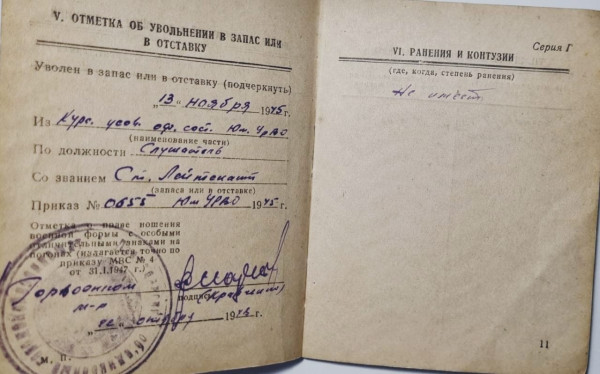 V. ОТМЕТКА ОБ УВОЛЬНЕНИИ В ЗАПАС ИЛИ
В ОТСТАВКУ
Уволен в запас или в отставку (подчеркнуть)
„13“ ноября 1945 г.
Из Курс. усов. оф. сост. Юж. УрВО
(наименование части)
По должности Слушатель
Со званием Ст. Лейтенант
(запаса или в отставке)
Приказ № 0655 Юж УРВО 1945 г.
Отметка о праве ношения
военной формы с особыми
отличительными знаками на
погонах (излагается точно по
приказу МВС № 4
от 31.1.1947 г.)
Горвоенком
м-р
подпись
октября 194 г.
м. п.
Серия Г
VI. РАНЕНИЯ И КОНТУЗИИ
(где, когда, степень ранения)
Не имеет
11